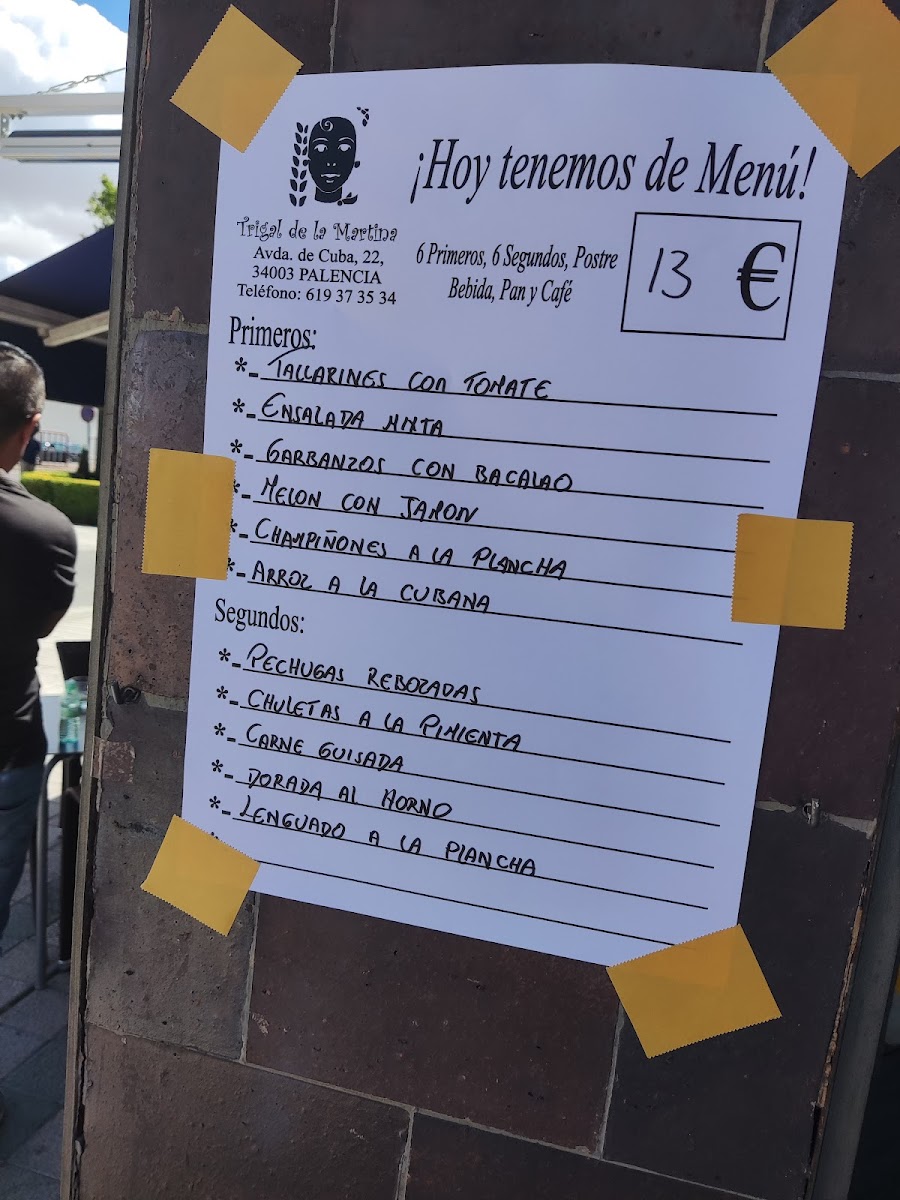 ¡Hoy tenemos de Menú!
Trigal de la Martina
Avda. de Cuba, 22,
34003 PALENCIA
Teléfono: 619 37 35 34
6 Primeros, 6 Segundos, Postre
Bebida, Pan y Café
13 €
Primeros:
*- TALLARINES CON TOMATE
*- ENSALADA MIXTA
*- GARBANZOS CON BACALAO
*- MELON CON JAMON
*- CHAMPIÑONES A LA PLANCHA
*- ARROZ A LA CUBANA
Segundos:
*- PECHUGAS REBOZADAS
*- CHULETAS A LA PIMIENTA
*- CARNE GUISADA
*- DORADA AL HORNO
*- LENGUADO A LA PLANCHA